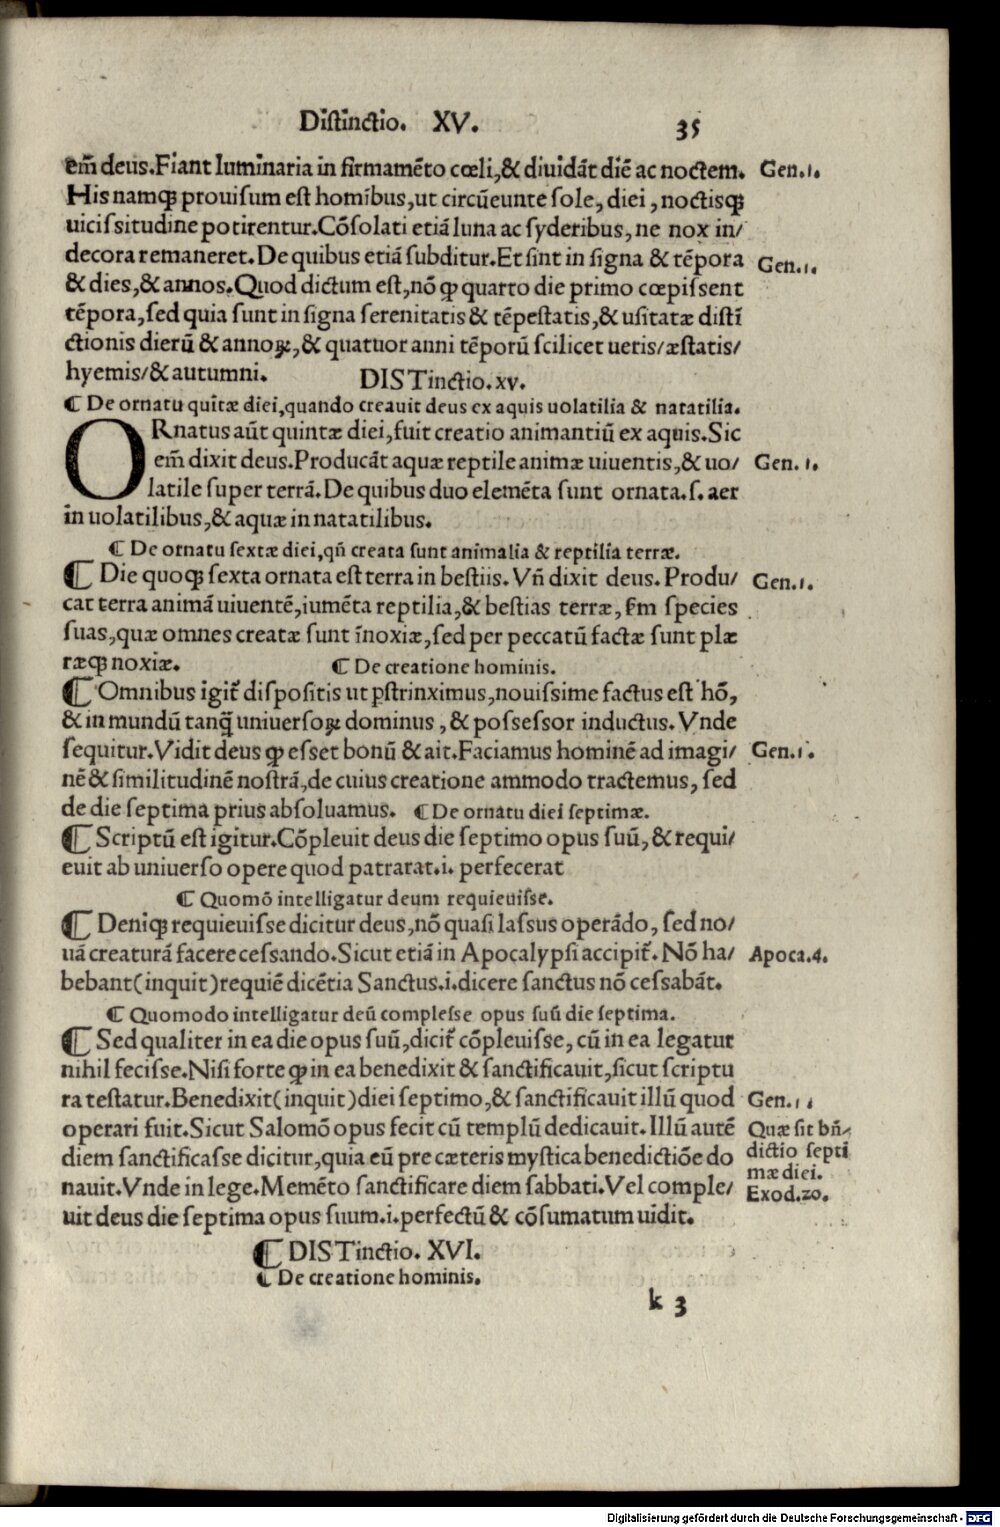 Distinctio. XV. 35
em̃ deus.Fiant luminaria in firmamẽto cœli,& diuidãt diẽ ac noctem. Gen.1.
His namqꝫ prouisum est hominibus,ut circũeunte sole, diei, noctisqꝫ
uicissitudine potirentur.Cõsolati etiã luna ac syderibus, ne nox in/
decora remaneret.De quibus etiã subditur.Et sint in signa & tẽpora Gen.1.
& dies,& annos.Quod dictum est,nõ ꝙ quarto die primo cœpissent
tẽpora,sed quia sunt in signa serenitatis & tẽpestatis,& usitatæ distĩ
ctionis dierũ & annoꝝ,& quatuor anni tẽporũ scilicet ueris/æstatis/
hyemis/& autumni. DISTinctio.xv.
¶ De ornatu quĩtæ diei,quando creauit deus ex aquis uolatilia & natatilia.
ORnatus aũt quintæ diei,fuit creatio animantiũ ex aquis.Sic
em̃ dixit deus.Producãt aquæ reptile animæ uiuentis,& uo/ Gen.1.
latile super terrã.De quibus duo elemẽta sunt ornata.s.aer
in uolatilibus,& aquæ in natatilibus.
¶ De ornatu sextæ diei,qñ creata sunt animalia & reptilia terræ.
¶ Die quoqꝫ sexta ornata est terra in bestiis.Vñ dixit deus.Produ/ Gen.1.
cat terra animã uiuentẽ,iumẽta reptilia,& bestias terræ, ẜm species
suas,quæ omnes creatæ sunt ĩnoxiæ,sed per peccatũ factæ sunt plæ
ræqꝫ noxiæ. ¶ De creatione hominis.
¶ Omnibus igit᷑ dispositis ut p̱strinximus,nouissime factus est hõ,
& in mundũ tanq̃ uniuersoꝝ dominus, & possessor inductus. Vnde
sequitur.Vidit deus ꝙ esset bonũ & ait.Faciamus hominẽ ad imagi/ Gen.1.
nẽ & similitudinẽ nostrã,de cuius creatione ammodo tractemus, sed
de die septima prius absoluamus. ¶ De ornatu diei septimæ.
¶ Scriptũ est igitur.Cõpleuit deus die septimo opus suũ,& requi/
euit ab uniuerso opere quod patrarat.i. perfecerat
¶ Quomõ intelligatur deum requieuisse.
¶ Deniqꝫ requieuisse dicitur deus,nõ quasi lassus operãdo, sed no/
uã creaturã facere cessando.Sicut etiã in Apocalypsi accipit᷑. Nõ ha/ Apoca.4.
bebant(inquit)requiẽ dicẽtia Sanctus.i.dicere sanctus nõ cessabãt.
¶ Quomodo intelligatur deũ complesse opus suũ die septima.
¶ Sed qualiter in ea die opus suũ,dicit᷑ cõpleuisse, cũ in ea legatur
nihil fecisse.Nisi forte ꝙ in ea benedixit & sanctificauit,sicut scriptu
ra testatur.Benedixit(inquit)diei septimo,& sanctificauit illũ quod Gen.1.
operari fuit.Sicut Salomõ opus fecit cũ templũ dedicauit.Illũ autẽ Quæ sit bñ/
diem sanctificasse dicitur,quia eũ pre cæteris mystica benedictiõe do dictio septi
nauit.Vnde in lege.Memẽto sanctificare diem sabbati.Vel comple/ mæ diei.
Exod.20.
uit deus die septima opus suum.i.perfectũ & cõsumatum uidit.
¶ DISTinctio. XVI.
¶ De creatione hominis.
k 3
Digitalisierung gefördert durch die Deutsche Forschungsgemeinschaft - DFG